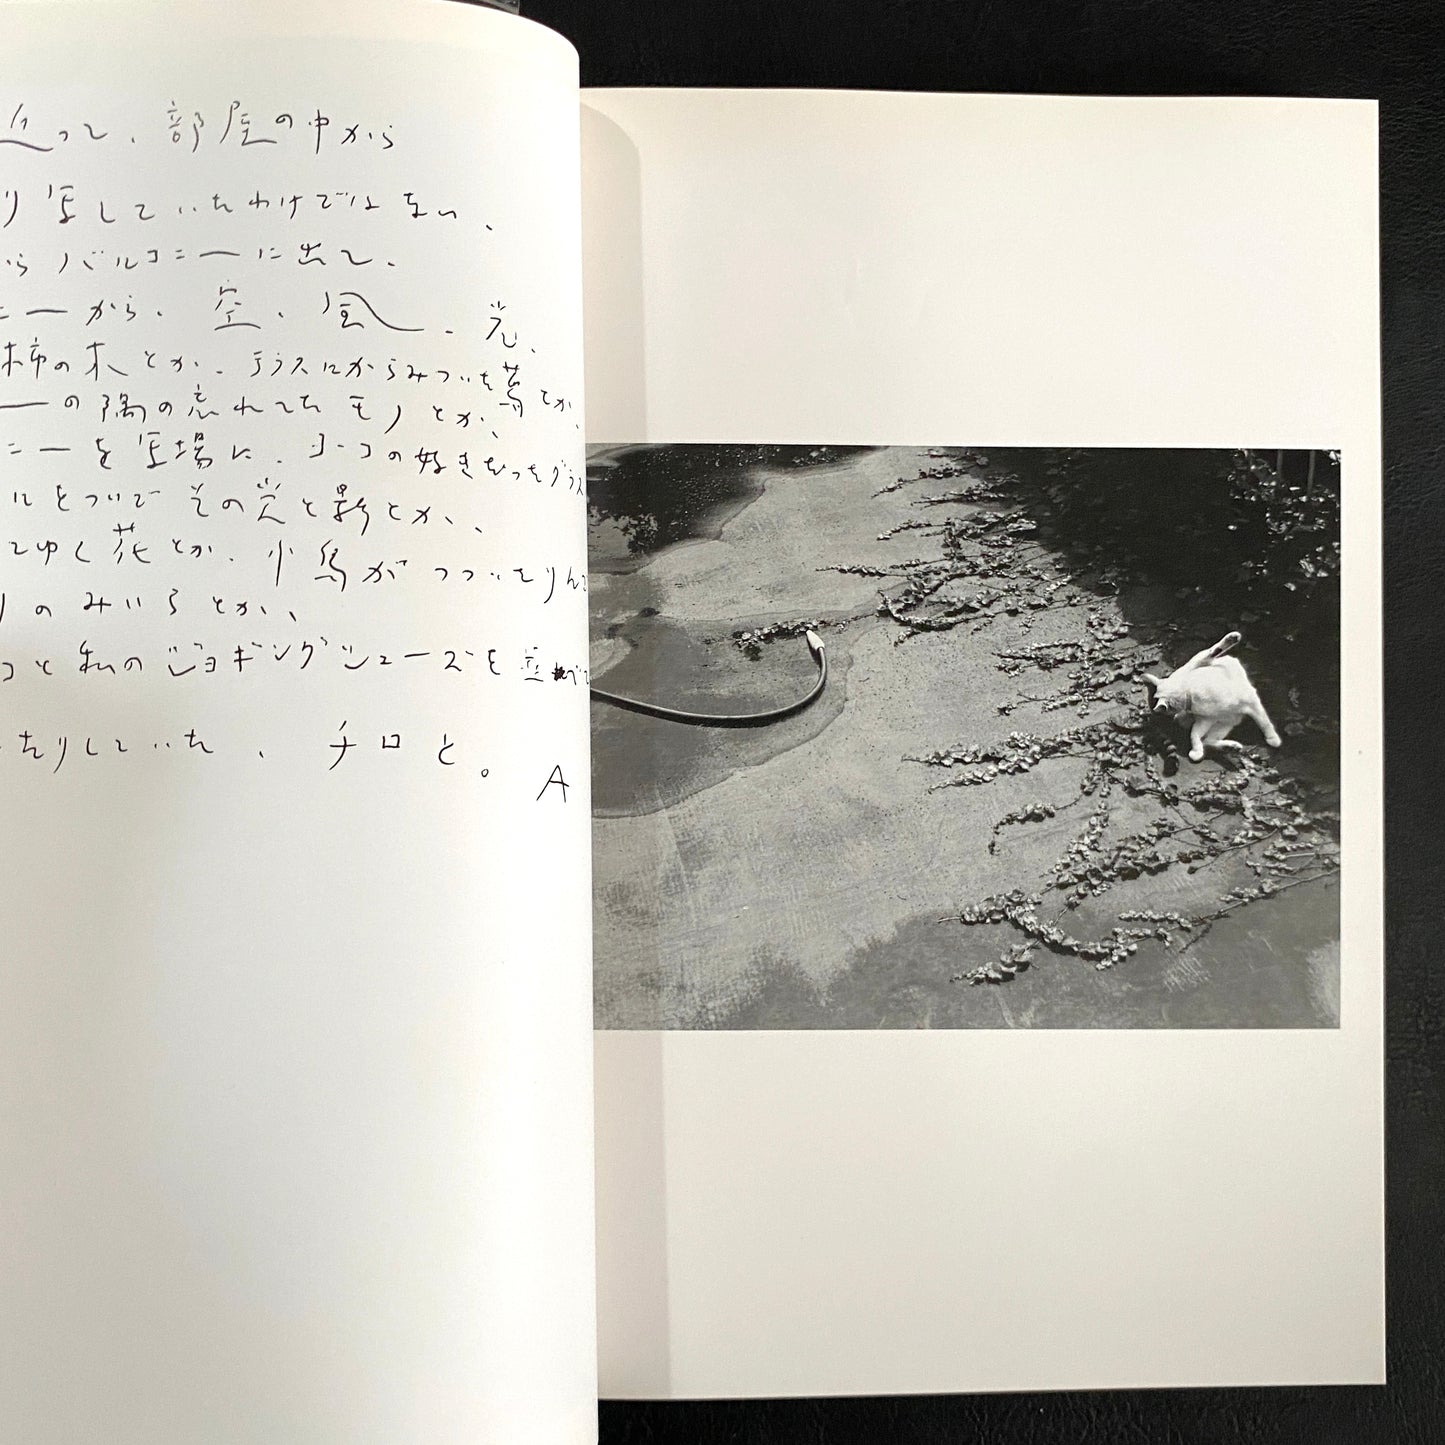 って、部屋の中から
り写していたわけではない、
からバルコニーに出て、
ニーから、空、風、光、
柿の木とか、テラスにからみついた蔦とか、
ーの隅の忘れてたモノとか、
ニーを写場に、ヨーコの好きだったグラス
ルをついでその光と影とか、
てゆく花とか、小鳥がつついたりんご
りのみいらとか、
コと私のジョギングシューズを並べて
たりしていた、チロと。
A